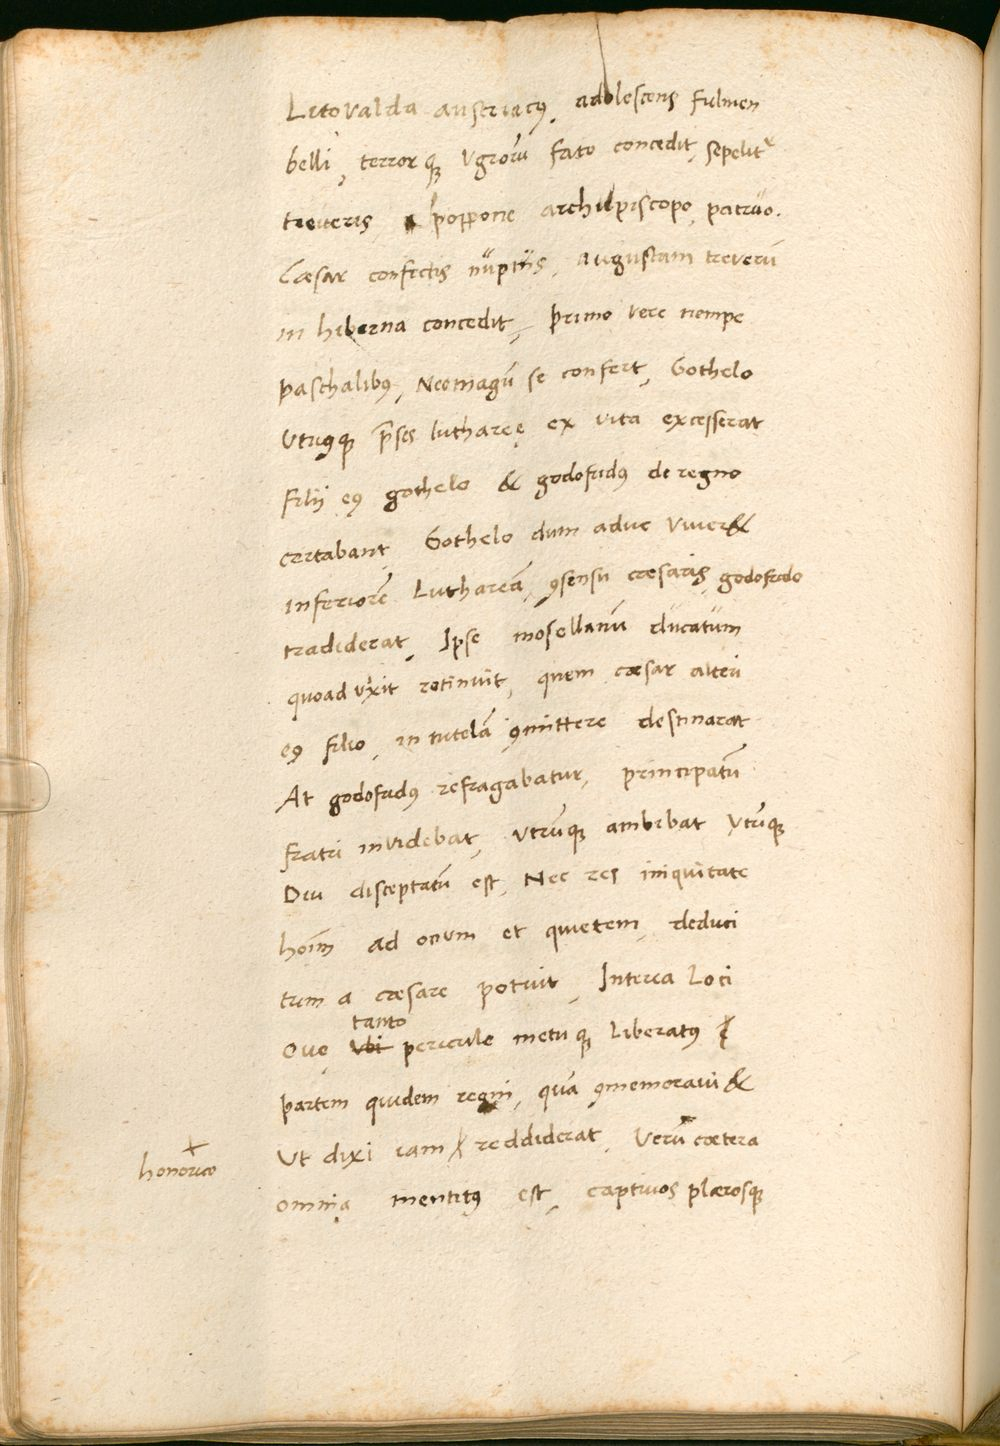 Litovalda austriacꝰ, adolescens fulmen
belli, terror qꝫ Ugrorū fato concedit, sepelitᵉ
treveris a Poppone archiepiscopo, patruo.
Cæsar confectis nuptiis, augustam treverū
in hiberna concedit, primo vere nempe
paschalibꝰ, Neomagū se confert, Gothelo
Utriꝰqꝫ p̄ses luthareę ex vita excesserat
filij eꝰ gothelo & godofridꝰ de regno
certabant, Gothelo dum aduc viver&
inferiorē Luthareā, ꝯsensu cæsaris, godofrido
tradiderat, Ipse mosellanū ducatum
quoad vixit retinuit, quem cæsar alteri
eꝰ filio, in tutelā ꝯmittere destinarat
At godofridꝰ refragabatur, principatū
fratri invidebat, utrūqꝫ ambibat utrūqꝫ
Diu disceptatū est, Nec res iniquitate
hoīm ad ocium et quietem, deduci
tum a cæsare potuit, Interea Loti
tanto
Ouo, ubi periculo metu qꝫ liberatꝰ
partem quidem regni, quā ꝯmemoravi &
Ut dixi iam reddiderat, Verū cætera
honorico
omnia mentitꝰ est, captivos plærosqꝫ